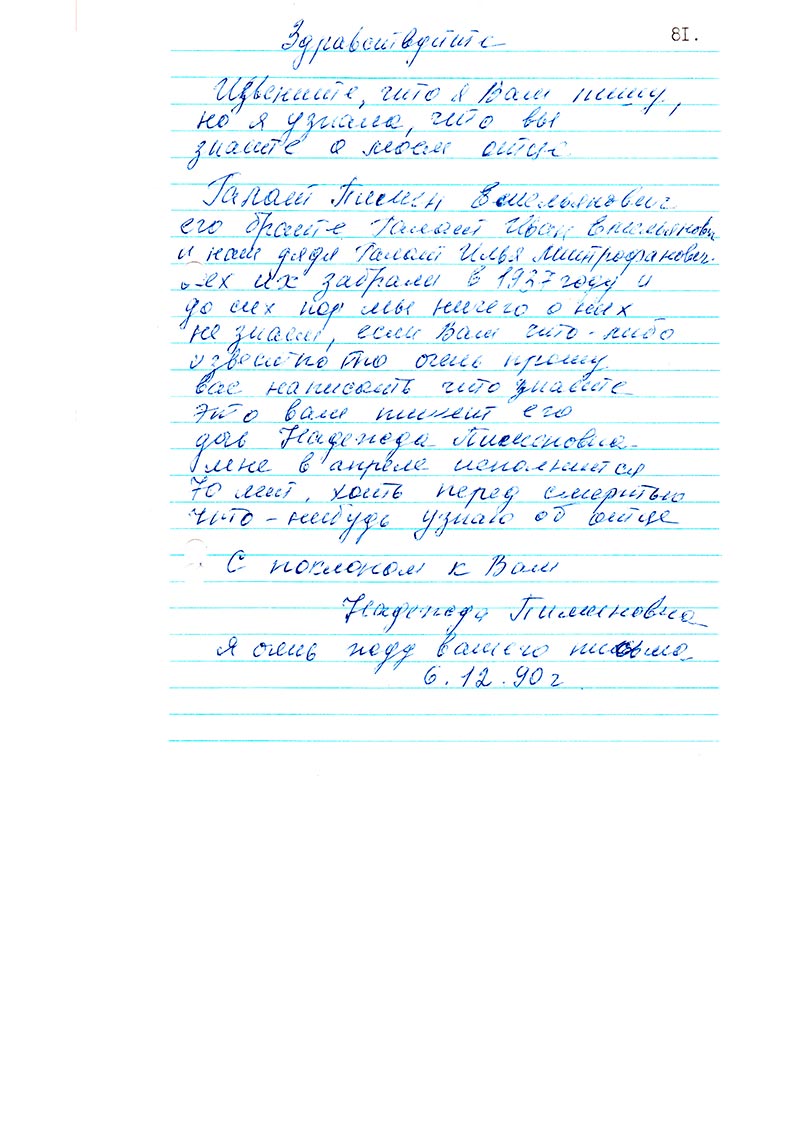 81.
Здравствдйте
Извените, что я Вам пишу,
но я узнала, что вы
знаите о моем отце
Галат Пимен Емельянович
его брате Галат Иван Емельянович
и наш дядя Галат Илья Митрофанович.
всех их забрали в 1937 году и
до сих пор мы ничего о них
не знаем, если Вам что-либо
известно то очень прошу
вас написать что знаите
это вам пишет его
дочь Надежода Пименовна
мне в апреле исполнится
70 лет, хоть перед смертью
что-нибудь узнаю об отце
С поклоном к Вам
Надежода Пименовна
я очень жду вашего письма
6.12.90 г